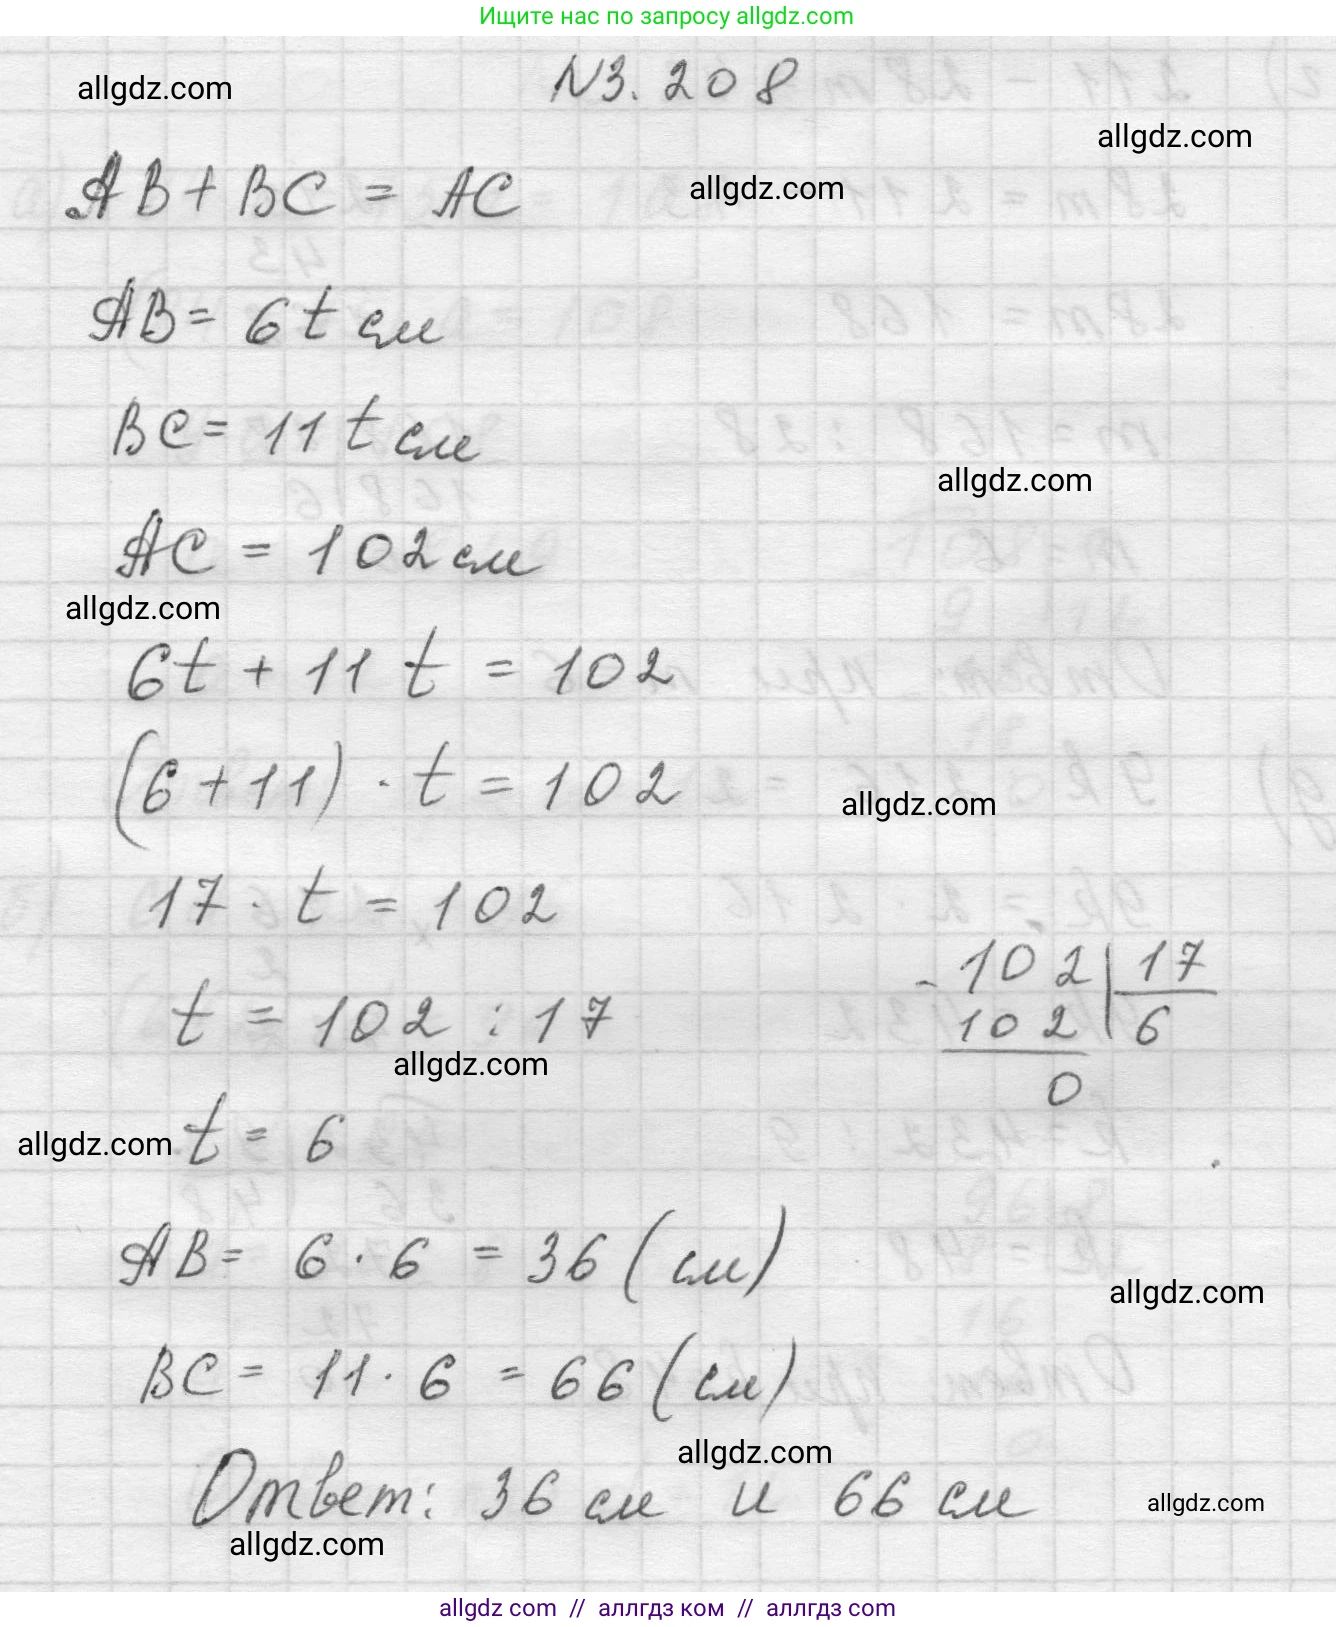 Ищите нас по запросу allgdz.com
allgdz.com
N3.208
allgdz.com
AB + BC = AC
allgdz.com
AB = 6t см
BC = 11t см
allgdz.com
AC = 102 см
allgdz.com
6t + 11t = 102
(6 + 11) · t = 102
allgdz.com
17 · t = 102
t = 102 : 17
- 102 | 17
102 | 6
0
allgdz.com
allgdz.com
t = 6
AB = 6 · 6 = 36 (см)
allgdz.com
BC = 11 · 6 = 66 (см)
allgdz.com
Ответ: 36 см и 66 см
allgdz.com
allgdz.com
allgdz com // аллгдз ком // аллгдз com